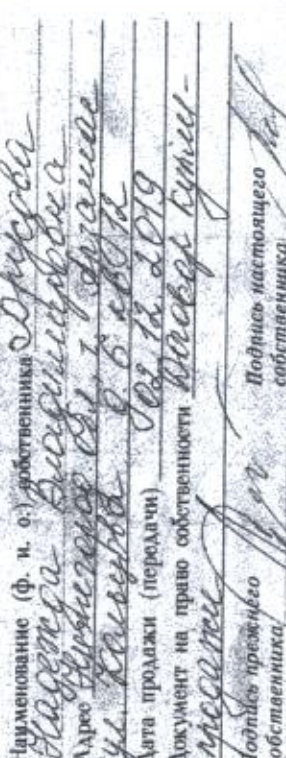 Наименование (ф. и. о.) собственника
Надежда Владимировна
Адрес Нижегород обл. г. Арзамас
ул. д. 6 кв. 12
Дата продажи (передачи) 02.12.2019
Документ на право собственности Договор купли-
продажи
Подпись прежнего собственника
Подпись настоящего собственника